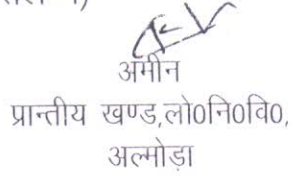 अमीन
प्रान्तीय खण्ड,लो0नि0वि0,
अल्मोड़ा